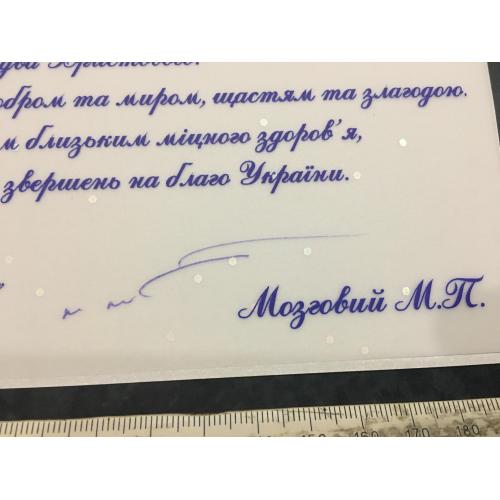 Христового.
добром та миром, щастям та злагодою.
м близьким міцного здоров'я,
звершень на благо України.
Мозговий М.П.
150 160 170 180